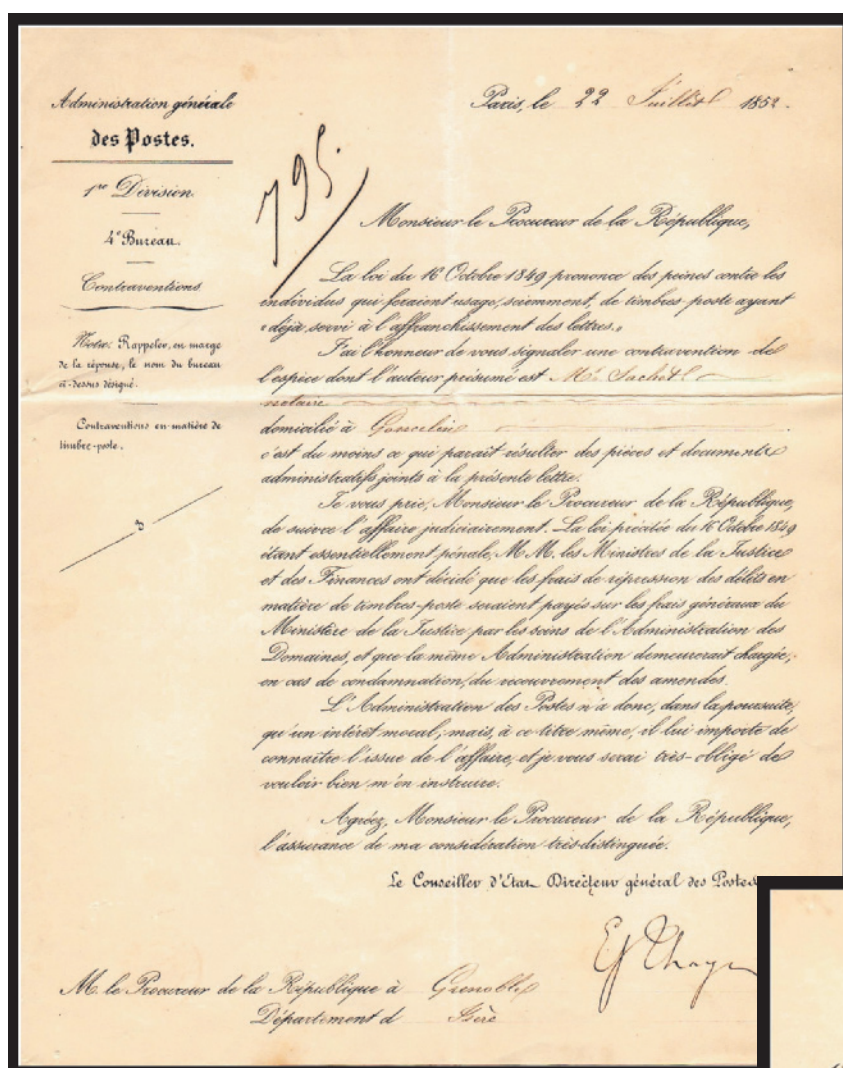 Administration générale
des Postes.
1re Division
4e Bureau.
Contraventions
Nota: Rappeler, en marge
de la réponse, le nom du bureau
ci-dessus désigné.
Contraventions en matière de
timbre-poste.
3
Paris, le 22 Juillet 1852.
795.
Monsieur le Procureur de la République,
La loi du 16 Octobre 1849 prononce des peines contre les
individus qui feraient usage, sciemment, de timbres-poste ayant
"déjà servi à l'affranchissement des lettres."
J'ai l'honneur de vous signaler une contravention de
l'espèce dont l'auteur présumé est Mr. Sachet
notaire
domicilié à Goncelin
c'est du moins ce qui paraît résulter des pièces et documents
administratifs joints à la présente lettre.
Je vous prie, Monsieur le Procureur de la République,
de suivre l'affaire judiciairement. La loi précitée du 16 Octobre 1849
étant essentiellement pénale, M.M. les Ministres de la Justice
et des Finances ont décidé que les frais de répression des délits en
matière de timbres-poste seraient payés sur les frais généraux du
Ministère de la Justice par les soins de l'Administration des
Domaines, et que la même Administration demeurerait chargée,
en cas de condamnation, du recouvrement des amendes.
L'Administration des Postes n'a donc, dans la poursuite,
qu'un intérêt moral; mais, à ce titre même, il lui importe de
connaître l'issue de l'affaire, et je vous serai très-obligé de
vouloir bien m'en instruire.
Agréez, Monsieur le Procureur de la République,
l'assurance de ma considération très-distinguée.
Le Conseiller d'Etat Directeur général des Postes
M. le Procureur de la République à Grenoble
Département d Isère